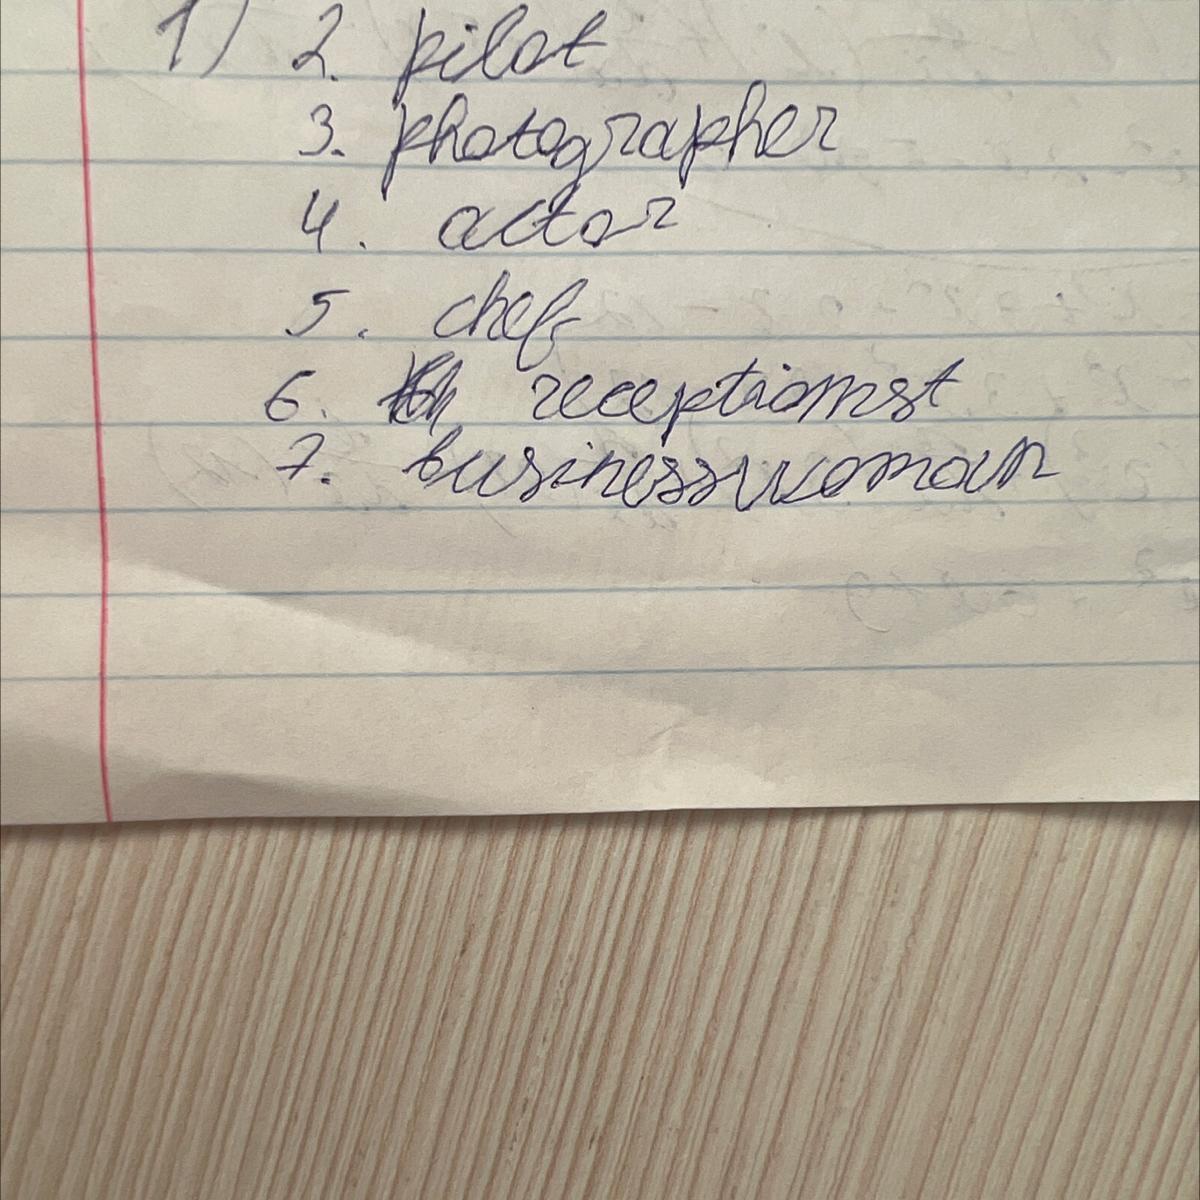 1) 2. pilot
3. photographer
4. actor
5. chef
6. receptionist
7. businesswoman